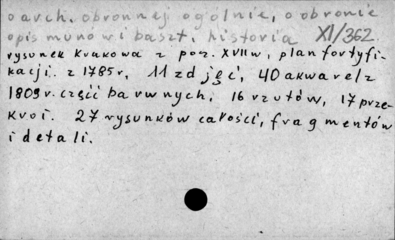 o arch. obronnej ogólnie, o obronie
opis murów i baszt, historia XI/362
rysunek Krakowa z pocz. XVII w, plan fortyfi-
kacji. z 1785 r, 11 zdjęć, 40 akwarel z
1809 r. część barwnych, 16 rzutów, 17 prze-
kroi. 27 rysunków całości, fragmentów
i detali.